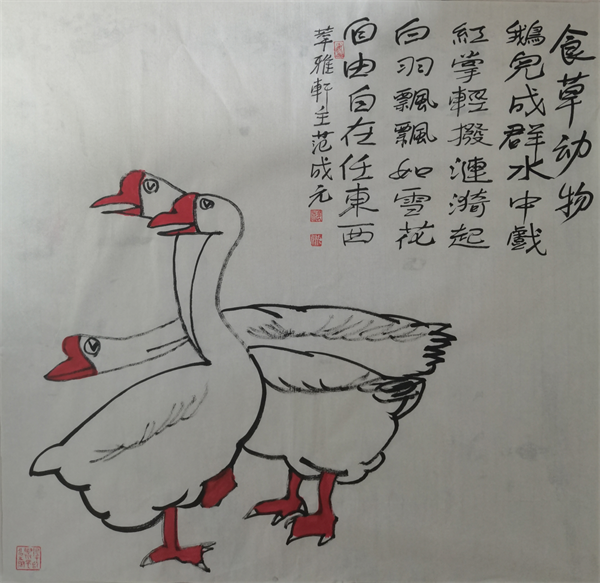 食草动物
鵝児成群水中戲
紅掌輕撥漣漪起
白羽飄飄如雪花
自由自在任東西
萃雅軒主范成元